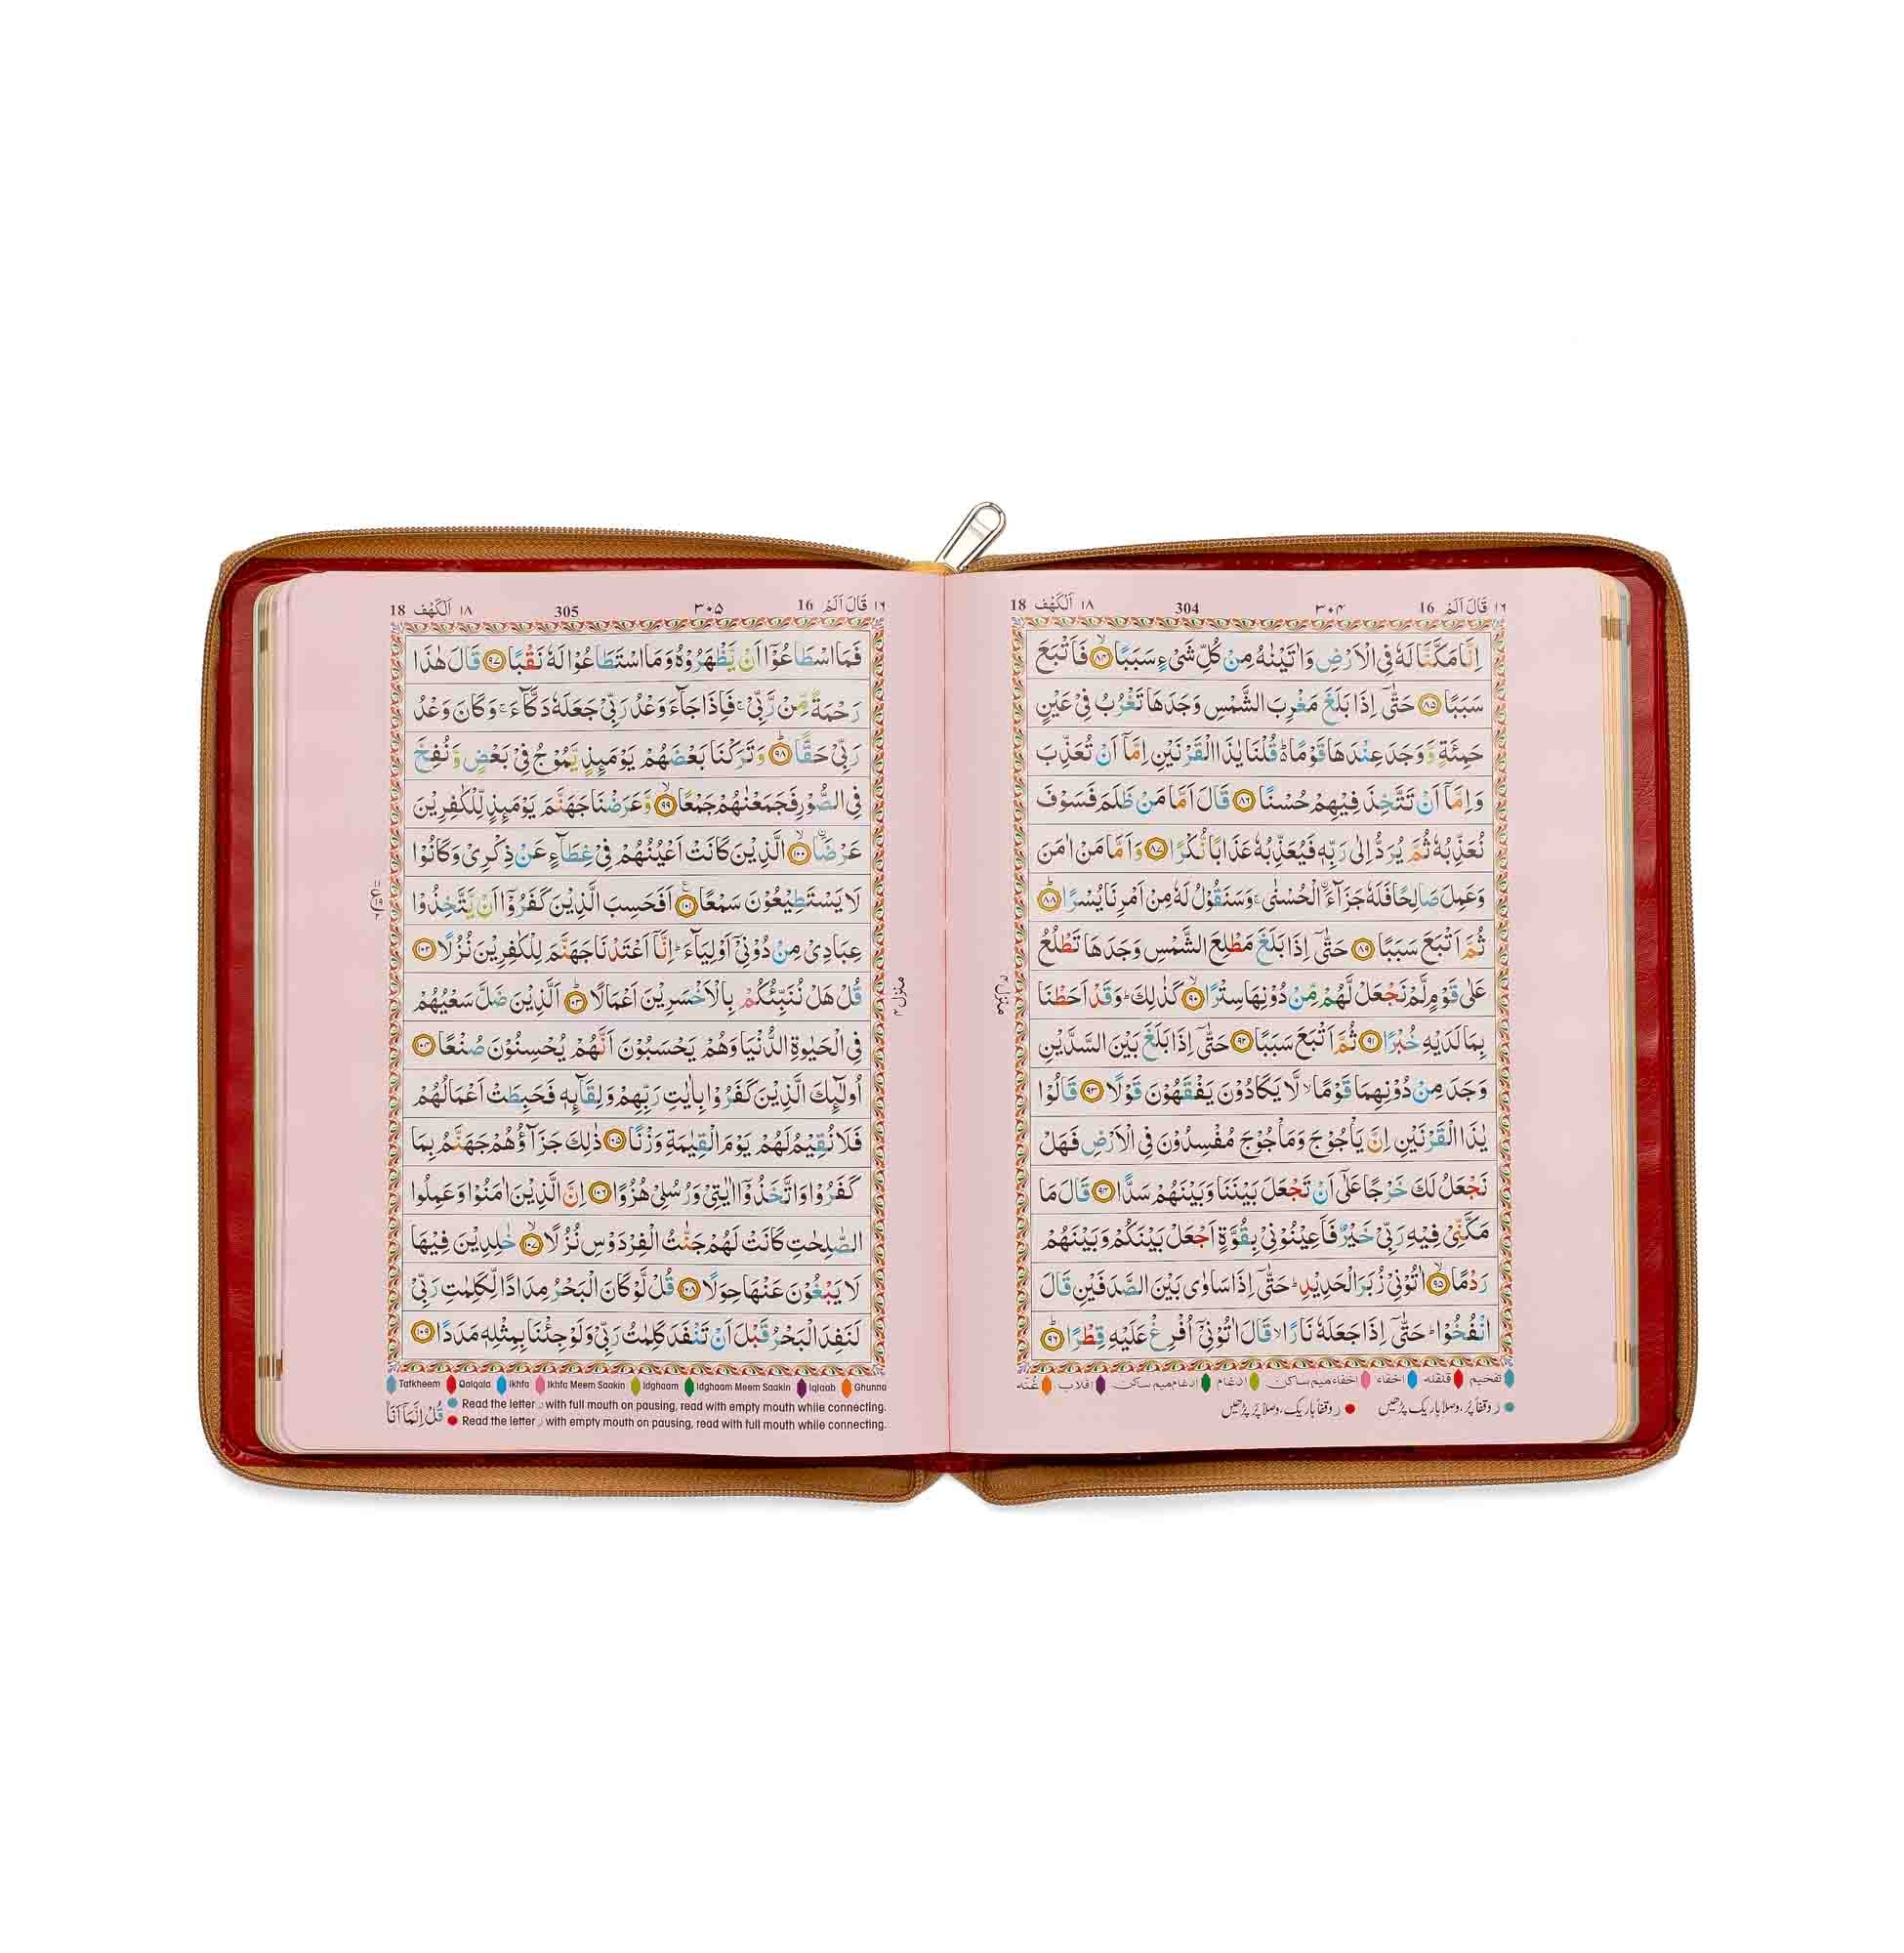 ١٦ قَالَ اَلَمْ 16 ٣٠٤ 304 ١٨ اَلْكَهْف 18
اِنَّا مَكَّنَّا لَهٗ فِى الْاَرْضِ وَاٰتَيْنٰهُ مِنْ كُلِّ شَىْءٍ سَبَبًا ۙ‏﴿٨٤﴾ فَاَتْبَعَ
سَبَبًا ﴿٨٥﴾ حَتّٰٓى اِذَا بَلَغَ مَغْرِبَ الشَّمْسِ وَجَدَهَا تَغْرُبُ فِىْ عَيْنٍ
حَمِئَةٍ وَّوَجَدَ عِنْدَهَا قَوْمًا ؕ قُلْنَا يٰذَا الْقَرْنَيْنِ اِمَّاۤ اَنْ تُعَذِّبَ
وَاِمَّاۤ اَنْ تَتَّخِذَ فِيْهِمْ حُسْنًا ﴿٨٦﴾ قَالَ اَمَّا مَنْ ظَلَمَ فَسَوْفَ
نُعَذِّبُهٗ ثُمَّ يُرَدُّ اِلٰى رَبِّهٖ فَيُعَذِّبُهٗ عَذَابًا نُّكْرًا ﴿٨٧﴾ وَاَمَّا مَنْ اٰمَنَ
وَعَمِلَ صَالِحًا فَلَهٗ جَزَآءَۨ الْحُسْنٰى ۚ وَسَنَقُوْلُ لَهٗ مِنْ اَمْرِنَا يُسْرًا ؕ‏﴿٨٨﴾
ثُمَّ اَتْبَعَ سَبَبًا ﴿٨٩﴾ حَتّٰٓى اِذَا بَلَغَ مَطْلِعَ الشَّمْسِ وَجَدَهَا تَطْلُعُ
عَلٰى قَوْمٍ لَّمْ نَجْعَلْ لَّهُمْ مِّنْ دُوْنِهَا سِتْرًا ۙ‏﴿٩٠﴾ كَذٰلِكَ ؕ وَقَدْ اَحَطْنَا
بِمَا لَدَيْهِ خُبْرًا ﴿٩١﴾ ثُمَّ اَتْبَعَ سَبَبًا ﴿٩٢﴾ حَتّٰٓى اِذَا بَلَغَ بَيْنَ السَّدَّيْنِ
وَجَدَ مِنْ دُوْنِهِمَا قَوْمًا ۙ لَّا يَكَادُوْنَ يَفْقَهُوْنَ قَوْلًا ﴿٩٣﴾ قَالُوْا
يٰذَا الْقَرْنَيْنِ اِنَّ يَاْجُوْجَ وَمَاْجُوْجَ مُفْسِدُوْنَ فِى الْاَرْضِ فَهَلْ
نَجْعَلُ لَكَ خَرْجًا عَلٰٓى اَنْ تَجْعَلَ بَيْنَنَا وَبَيْنَهُمْ سَدًّا ﴿٩٤﴾ قَالَ مَا
مَكَّنِّىْ فِيْهِ رَبِّىْ خَيْرٌ فَاَعِيْنُوْنِىْ بِقُوَّةٍ اَجْعَلْ بَيْنَكُمْ وَبَيْنَهُمْ
رَدْمًا ۙ‏﴿٩٥﴾ اٰتُوْنِىْ زُبَرَ الْحَدِيْدِ ؕ حَتّٰٓى اِذَا سَاوٰى بَيْنَ الصَّدَفَيْنِ قَالَ
انْفُخُوْا ؕ حَتّٰٓى اِذَا جَعَلَهٗ نَارًا ۙ قَالَ اٰتُوْنِىْۤ اُفْرِغْ عَلَيْهِ قِطْرًا ؕ‏﴿٩٦﴾
تفخیم قلقله اخفاء اخفاء میم ساکن ادغام ادغام میم ساکن اقلاب غُنّه
ر وقفاً پُر، وصلاً باریک پڑھیں ر وقفاً باریک، وصلاً پُر پڑھیں
منزل ٤
١٦ قَالَ اَلَمْ 16 ٣٠٥ 305 ١٨ اَلْكَهْف 18
فَمَا اسْطَاعُوْۤا اَنْ يَّظْهَرُوْهُ وَمَا اسْتَطَاعُوْا لَهٗ نَقْبًا ﴿٩٧﴾ قَالَ هٰذَا
رَحْمَةٌ مِّنْ رَّبِّىْ ۚ فَاِذَا جَآءَ وَعْدُ رَبِّىْ جَعَلَهٗ دَكَّآءَ ۚ وَكَانَ وَعْدُ
رَبِّىْ حَقًّا ؕ‏﴿٩٨﴾ وَتَرَكْنَا بَعْضَهُمْ يَوْمَئِذٍ يَّمُوْجُ فِىْ بَعْضٍ وَّنُفِخَ
فِى الصُّوْرِ فَجَمَعْنٰهُمْ جَمْعًا ۙ‏﴿٩٩﴾ وَّعَرَضْنَا جَهَنَّمَ يَوْمَئِذٍ لِّلْكٰفِرِيْنَ
عَرْضَا ۙ‏﴿١٠٠﴾ الَّذِيْنَ كَانَتْ اَعْيُنُهُمْ فِىْ غِطَآءٍ عَنْ ذِكْرِىْ وَكَانُوْا
لَا يَسْتَطِيْعُوْنَ سَمْعًا ﴿١٠١﴾ اَفَحَسِبَ الَّذِيْنَ كَفَرُوْۤا اَنْ يَّتَّخِذُوْا
عِبَادِىْ مِنْ دُوْنِىْۤ اَوْلِيَآءَ ؕ اِنَّاۤ اَعْتَدْنَا جَهَنَّمَ لِلْكٰفِرِيْنَ نُزُلًا ﴿١٠٢﴾
قُلْ هَلْ نُنَبِّئُكُمْ بِالْاَخْسَرِيْنَ اَعْمَالًا ؕ‏﴿١٠٣﴾ اَلَّذِيْنَ ضَلَّ سَعْيُهُمْ
فِى الْحَيٰوةِ الدُّنْيَا وَهُمْ يَحْسَبُوْنَ اَنَّهُمْ يُحْسِنُوْنَ صُنْعًا ﴿١٠٤﴾
اُولٰٓئِكَ الَّذِيْنَ كَفَرُوْا بِاٰيٰتِ رَبِّهِمْ وَلِقَآئِهٖ فَحَبِطَتْ اَعْمَالُهُمْ
فَلَا نُقِيْمُ لَهُمْ يَوْمَ الْقِيٰمَةِ وَزْنًا ﴿١٠٥﴾ ذٰلِكَ جَزَآؤُهُمْ جَهَنَّمُ بِمَا
كَفَرُوْا وَاتَّخَذُوْۤا اٰيٰتِىْ وَرُسُلِىْ هُزُوًا ﴿١٠٦﴾ اِنَّ الَّذِيْنَ اٰمَنُوْا وَعَمِلُوا
الصّٰلِحٰتِ كَانَتْ لَهُمْ جَنّٰتُ الْفِرْدَوْسِ نُزُلًا ۙ‏﴿١٠٧﴾ خٰلِدِيْنَ فِيْهَا
لَا يَبْغُوْنَ عَنْهَا حِوَلًا ﴿١٠٨﴾ قُلْ لَّوْ كَانَ الْبَحْرُ مِدَادًا لِّكَلِمٰتِ رَبِّىْ
لَنَفِدَ الْبَحْرُ قَبْلَ اَنْ تَنْفَدَ كَلِمٰتُ رَبِّىْ وَلَوْ جِئْنَا بِمِثْلِهٖ مَدَدًا ﴿١٠٩﴾
Tafkheem Qalqala Ikhfa Ikhfa Meem Saakin Idghaam Idghaam Meem Saakin Iqlaab Ghunna
Read the letter ر with full mouth on pausing, read with empty mouth while connecting.
Read the letter ر with empty mouth on pausing, read with full mouth while connecting.
قُلْ اِنَّمَاۤ اَنَا
منزل ٤